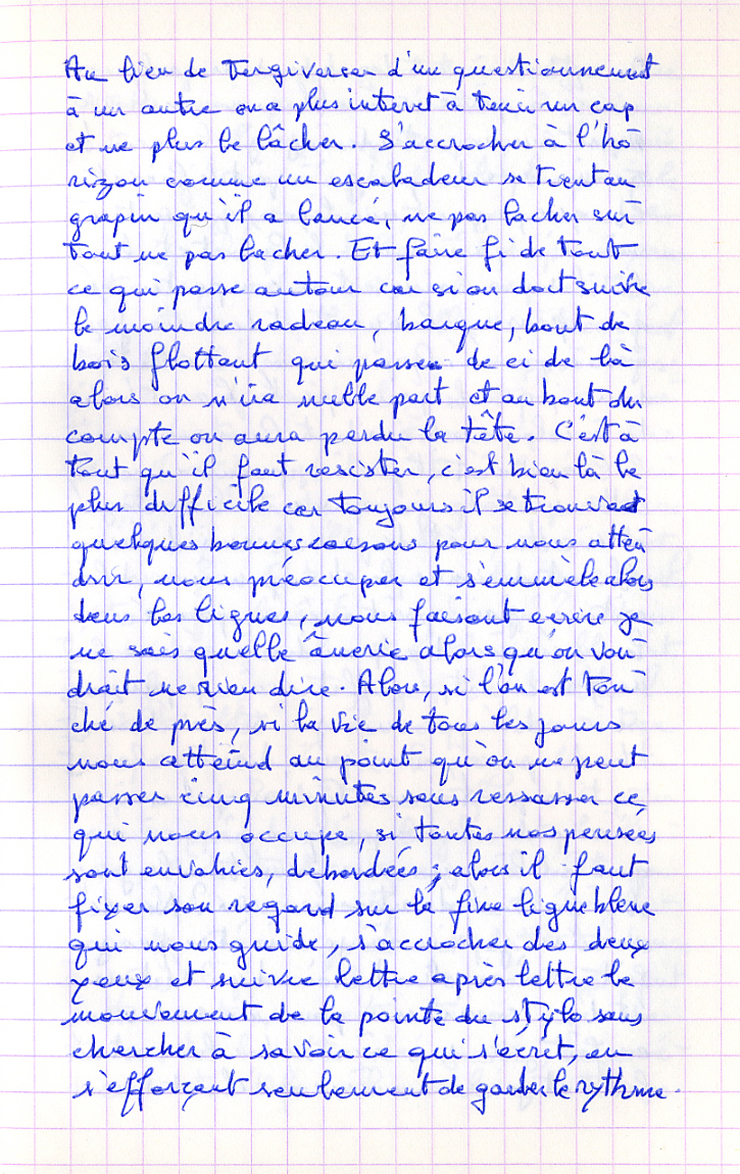 Au lieu de tergiverser d'un questionnement
à un autre on a plus interet à tenir un cap
et ne plus le lâcher. S'accrocher à l'ho
rizon comme un escaladeur se tient au
grapin qu'il a lancé, ne pas lacher sur
tout ne pas lacher. Et faire fi de tout
ce qui passe autour car si on doit suivre
le moindre radeau, barque, bout de
bois flottant qui passe de ci de là
alors on n'ira nulle part et au bout du
compte on aura perdu la tête. C'est à
tout qu'il faut rescister, c'est bien là le
plus difficile car toujours il se trouvera
quelques bonnes raisons pour nous atten
drir, nous préoccuper et s'emmèle alors
dans les lignes, nous faisant ecrire je
ne sais quelle ânerie alors qu'on vou
drait ne rien dire. Alors, si l'on est tou
ché de près, si la vie de tous les jours
nous atteind au point qu'on ne peut
passer cinq minutes sans ressasser ce
qui nous occupe, si toutes nos pensées
sont envahies, debordées ; alors il faut
fixer son regard sur la fine ligne bleue
qui nous guide, s'accrocher des deux
yeux et suivre lettre après lettre le
mouvement de la pointe du stylo sans
chercher à savoir ce qui s'ecrit, en
s'efforçant seulement de garder le rythme.